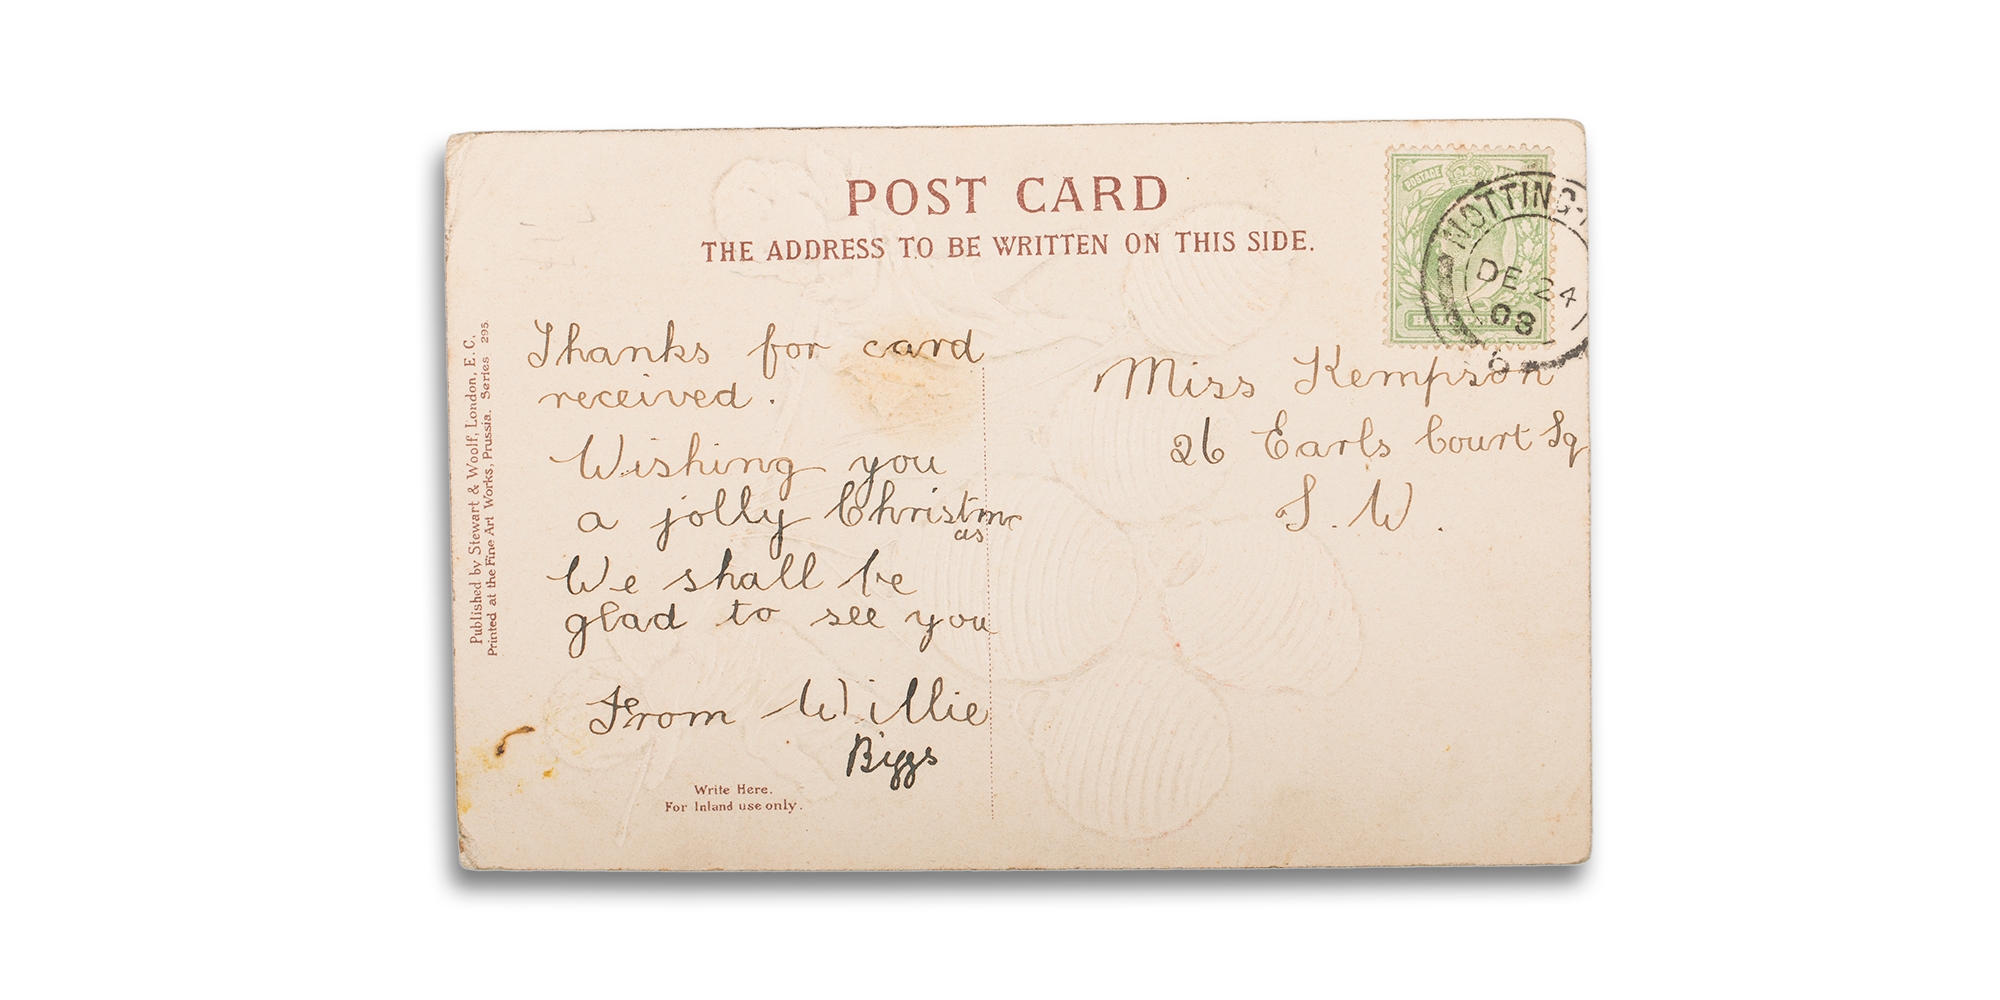 POST CARD
THE ADDRESS TO BE WRITTEN ON THIS SIDE.
POSTAGE
NOTTING-
DE 24
03
6
Published by Stewart & Woolf, London, E. C.
Printed at the Fine Art Works, Prussia. Series 295.
Thanks for card
received.
Wishing you
a jolly Christm
as
We shall be
glad to see you
From Willie
Biggs
Write Here.
For Inland use only.
Miss Kempson
26 Earls Court Sq
S. W.